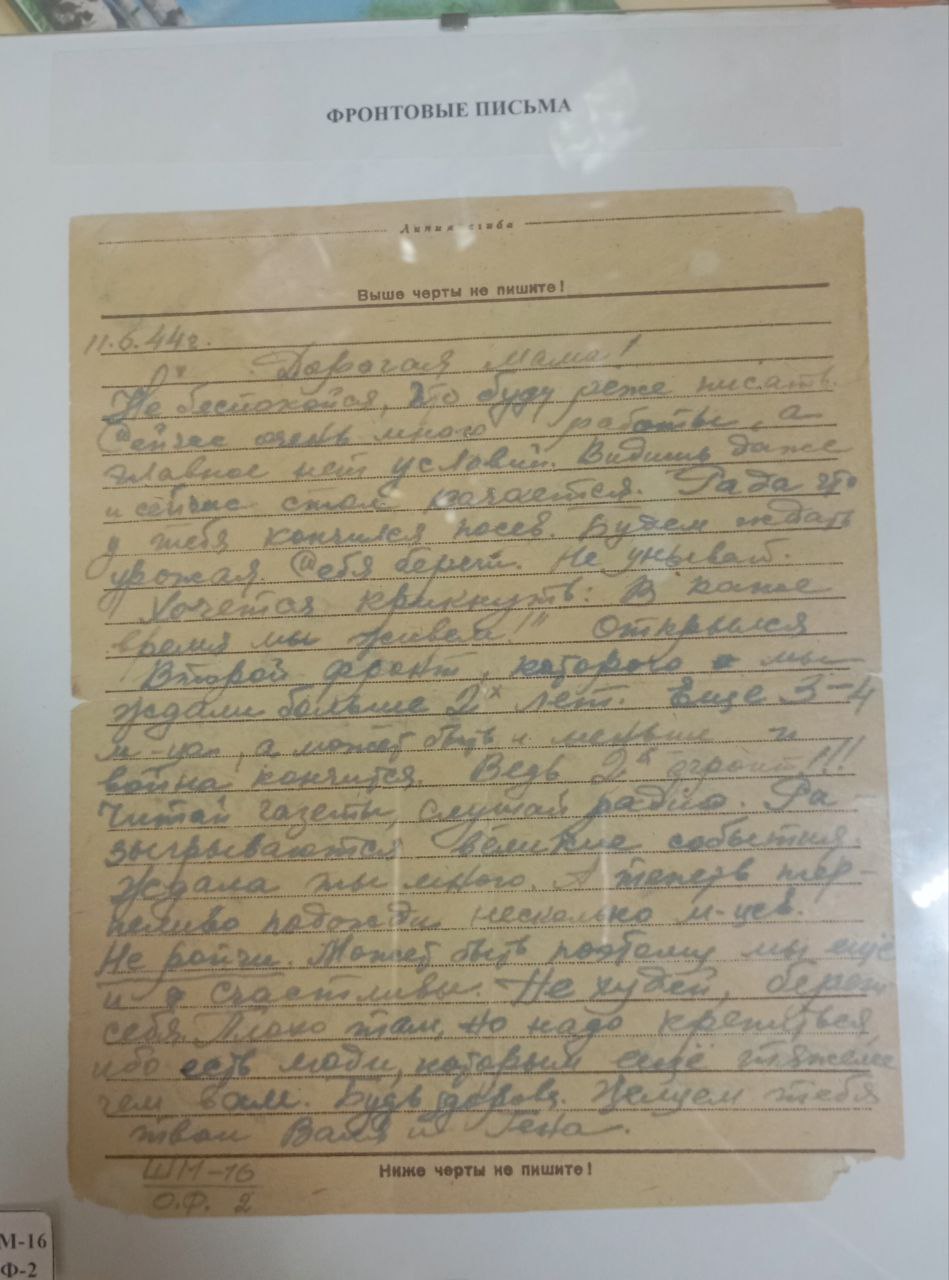 ФРОНТОВЫЕ ПИСЬМА
Линия сгиба
Выше черты не пишите!
11.6.44г.
Дорогая мама!
Не беспокойся, что буду реже писать.
Сейчас очень много работы, а
главное нет условий. Видишь даже
и сейчас стол качается. Рада что
у тебя кончился посев. Будем ждать
урожая. Себя береги. Не унывай.
Хочется крикнуть: "В какое
время мы живем!" Открылся
Второй фронт, которого мы
ждали больше 2х лет. Еще 3-4
м-ца, а может быть и меньше и
война кончится. Ведь 2й фронт!!!
Читай газеты, слушай радио. Ра
зыгрываются великие события.
Ждала ты много. А теперь тер-
пеливо подожди несколько м-цев.
Не ропчи. Может быть поэтому мы ещё
и счастливы. Не худей, береги
себя. Плохо там, но надо крепиться,
ибо есть люди, которым ещё тяжелее
чем вам. Будь здорова. Целуем тебя
твои Валя и Гена.
Ниже черты не пишите!
ШМ-16
О.Ф. 2
М-16
Ф-2